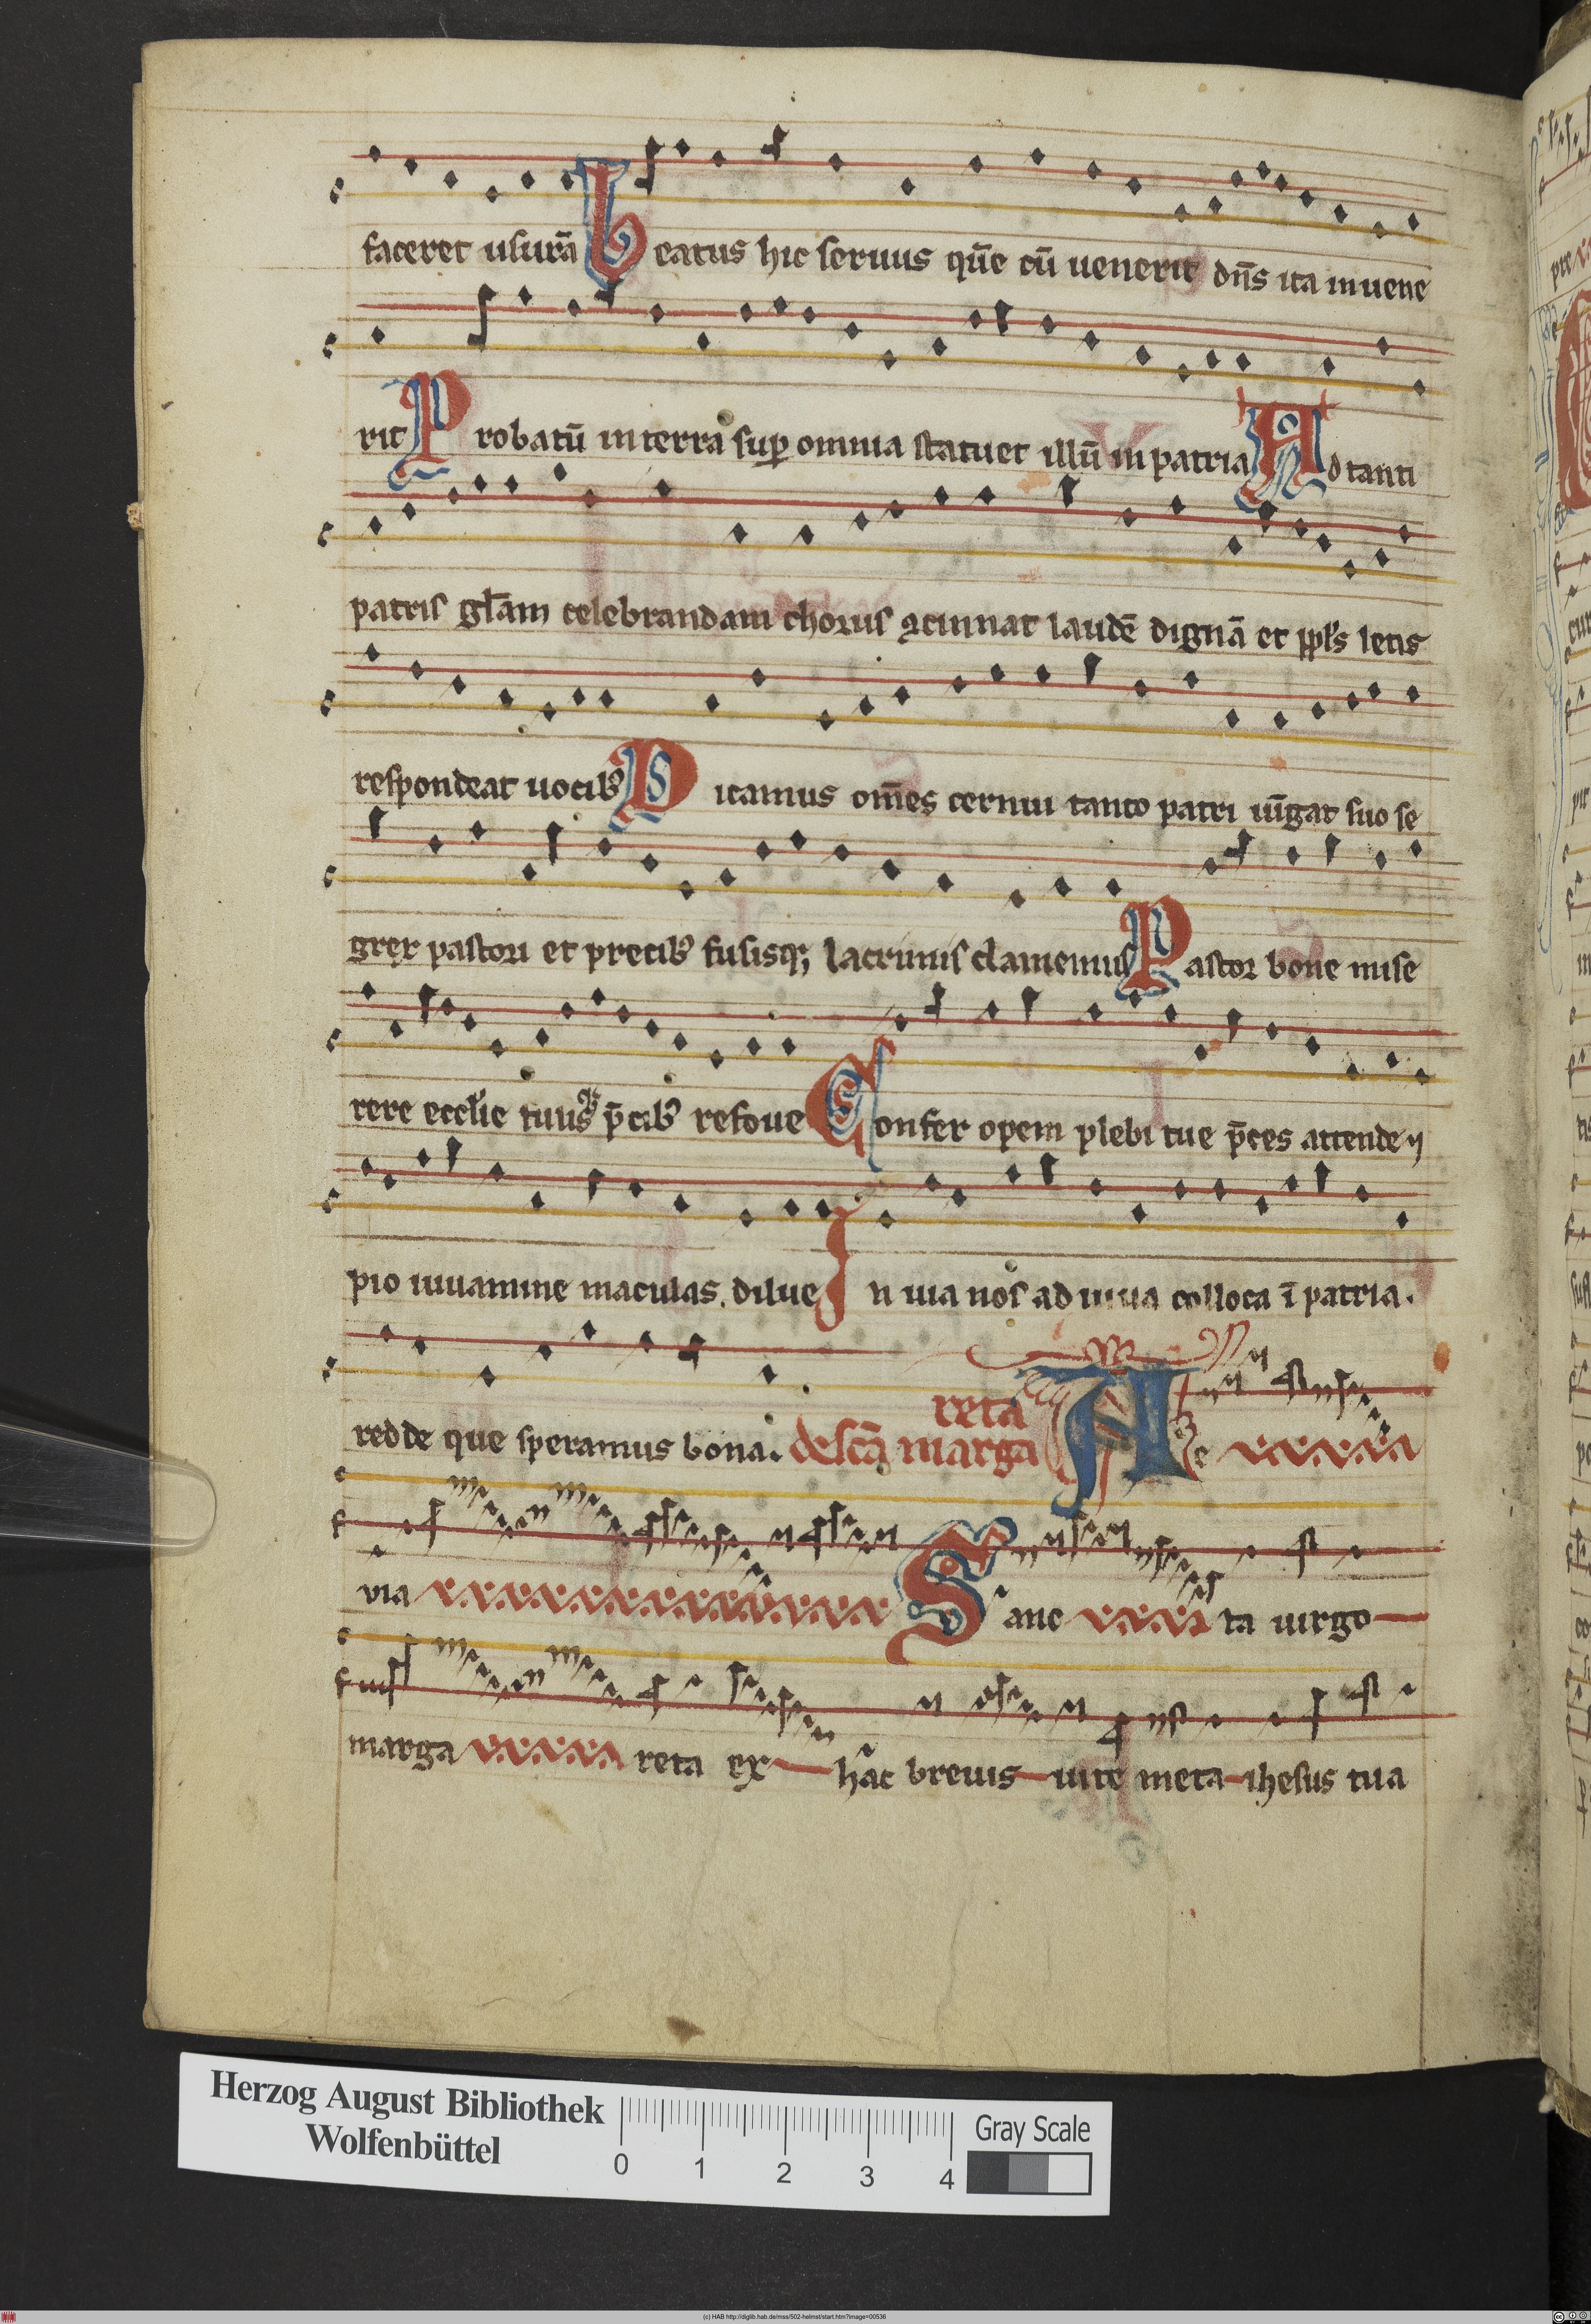 faceret usurā Beatus hic seruus quē cū uenerit dn̄s ita inuene
rit Probatū in terra suꝑ omnia statuet illū in patria Ad tanti
patris gl̄am celebrandam chorus ꝯcinnat laudē dignā et ppl̄s letis
respondeat uocibꝰ Dicamus om̄es cernui tanto patri iūgat suo se
grex pastori et precibꝰ fusisqꝫ lacrimis clamemus Pastor bone mise
rere eccl̄ie tuusqꝫ p̄cibꝰ refoue Confer opem plebi tue p̄ces attende ⁊
pio iuuamine maculas dilue In uia nos ad uiua colloca ī patria.
redde que speramus bona. de sc̄a marga
reta
Aze
via Sane ta uirgo
marga reta ex hac breuis uite meta ihesus tua
Herzog August Bibliothek
Wolfenbüttel
0 1 2 3 4
Gray Scale
(c) HAB http://diglib.hab.de/mss/502-helmst/start.htm?image=00536